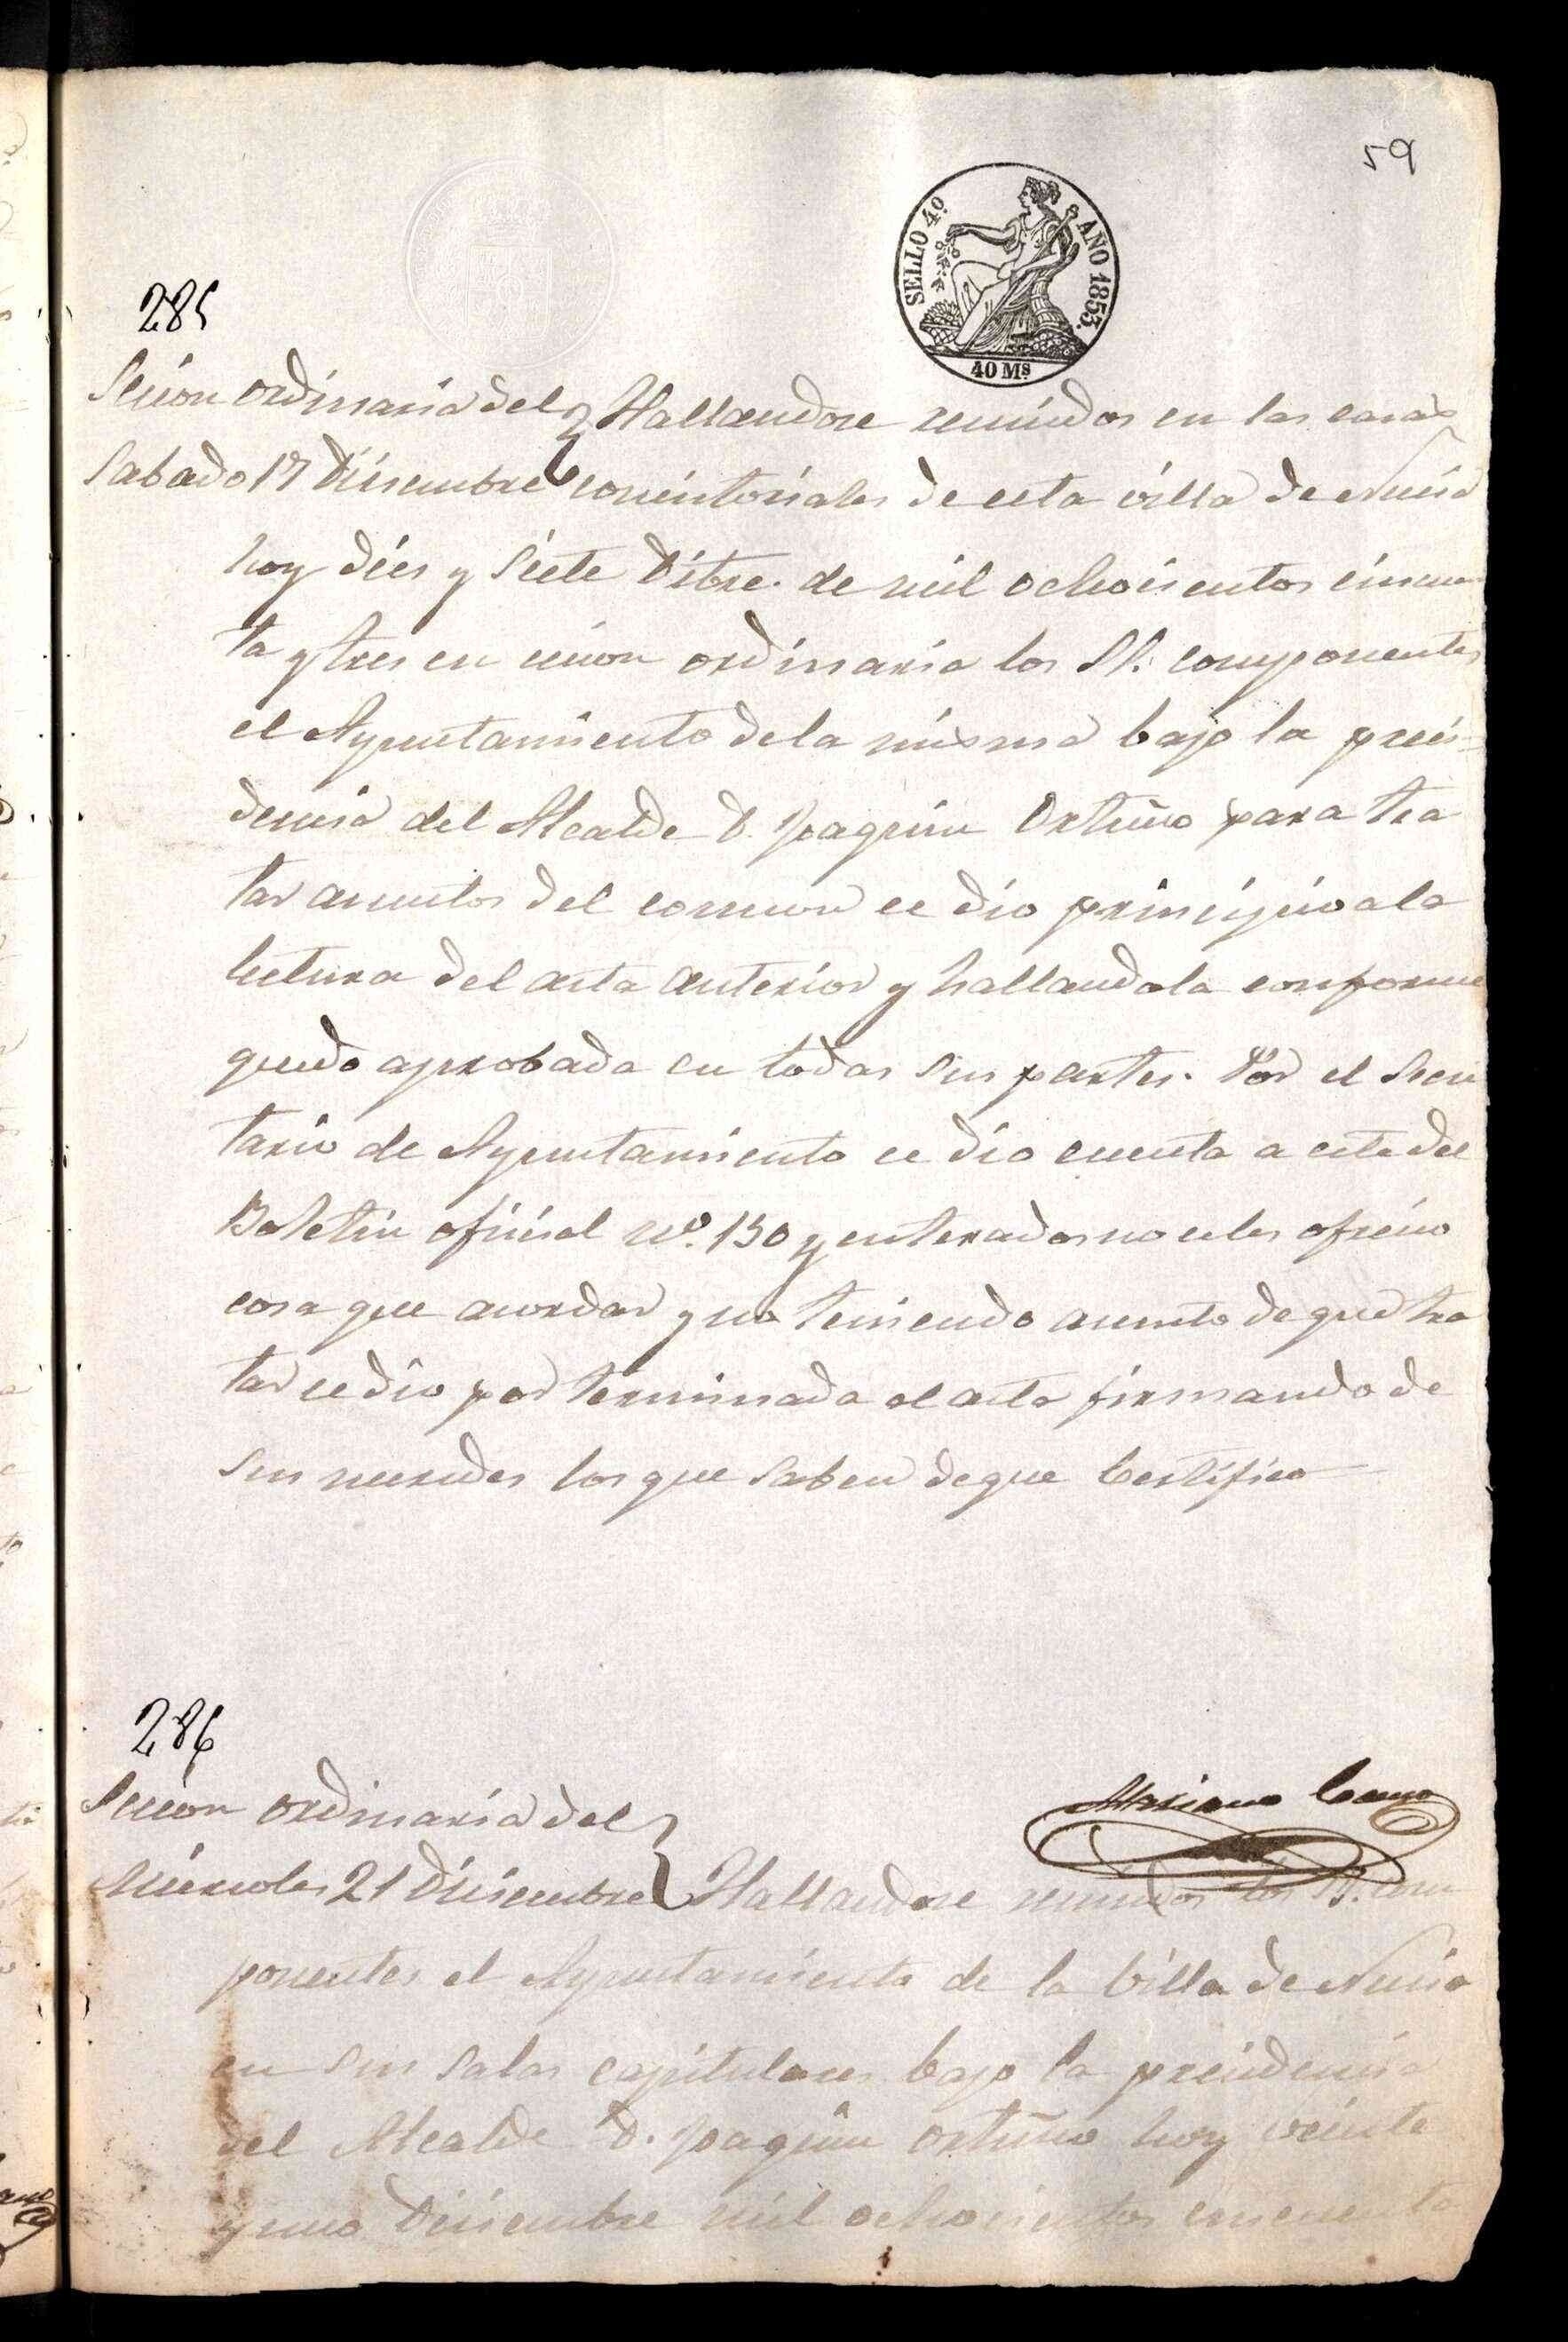 59
SELLO 4º AÑO 1853.
40 Ms
285
Secion ordinaria del
Sabado 17 Diciembre
Hallandose reunidos en las casas
concistoriales de esta villa de Nucia
hoy dies y siete Dibre. de mil ochocientos cincuen
ta y tres en cecion ordinaria los SS. componentes
el Ayuntamiento de la misma bajo la preci-
dencia del Alcalde D. Joaquin Ortuño para tra
tar asuntos del comun ce dio principio a la
lectura del acta anterior y hallandola conforme
quedo aprobada en todas sus partes. Por el Secre
tario de Ayuntamiento ce dio cuenta a este del
Boletin oficial nº. 150 y enterados no celes ofrecio
cosa que acordar y no teniendo asunto de que tra
tar ce dio por terminada el acta firmando de
sus mercedes los que saben de que Certifico
286
Secion ordinaria del
Miercoles 21 Diciembre
Mariano Cano
Hallandose reunidos los SS. com
ponentes el Ayuntamiento de la Villa de Nucia
en sus salas capitulares bajo la precidencia
del Alcalde D. Joaquin Ortuño hoy veinte
y uno Diciembre mil ochocientos cincuenta